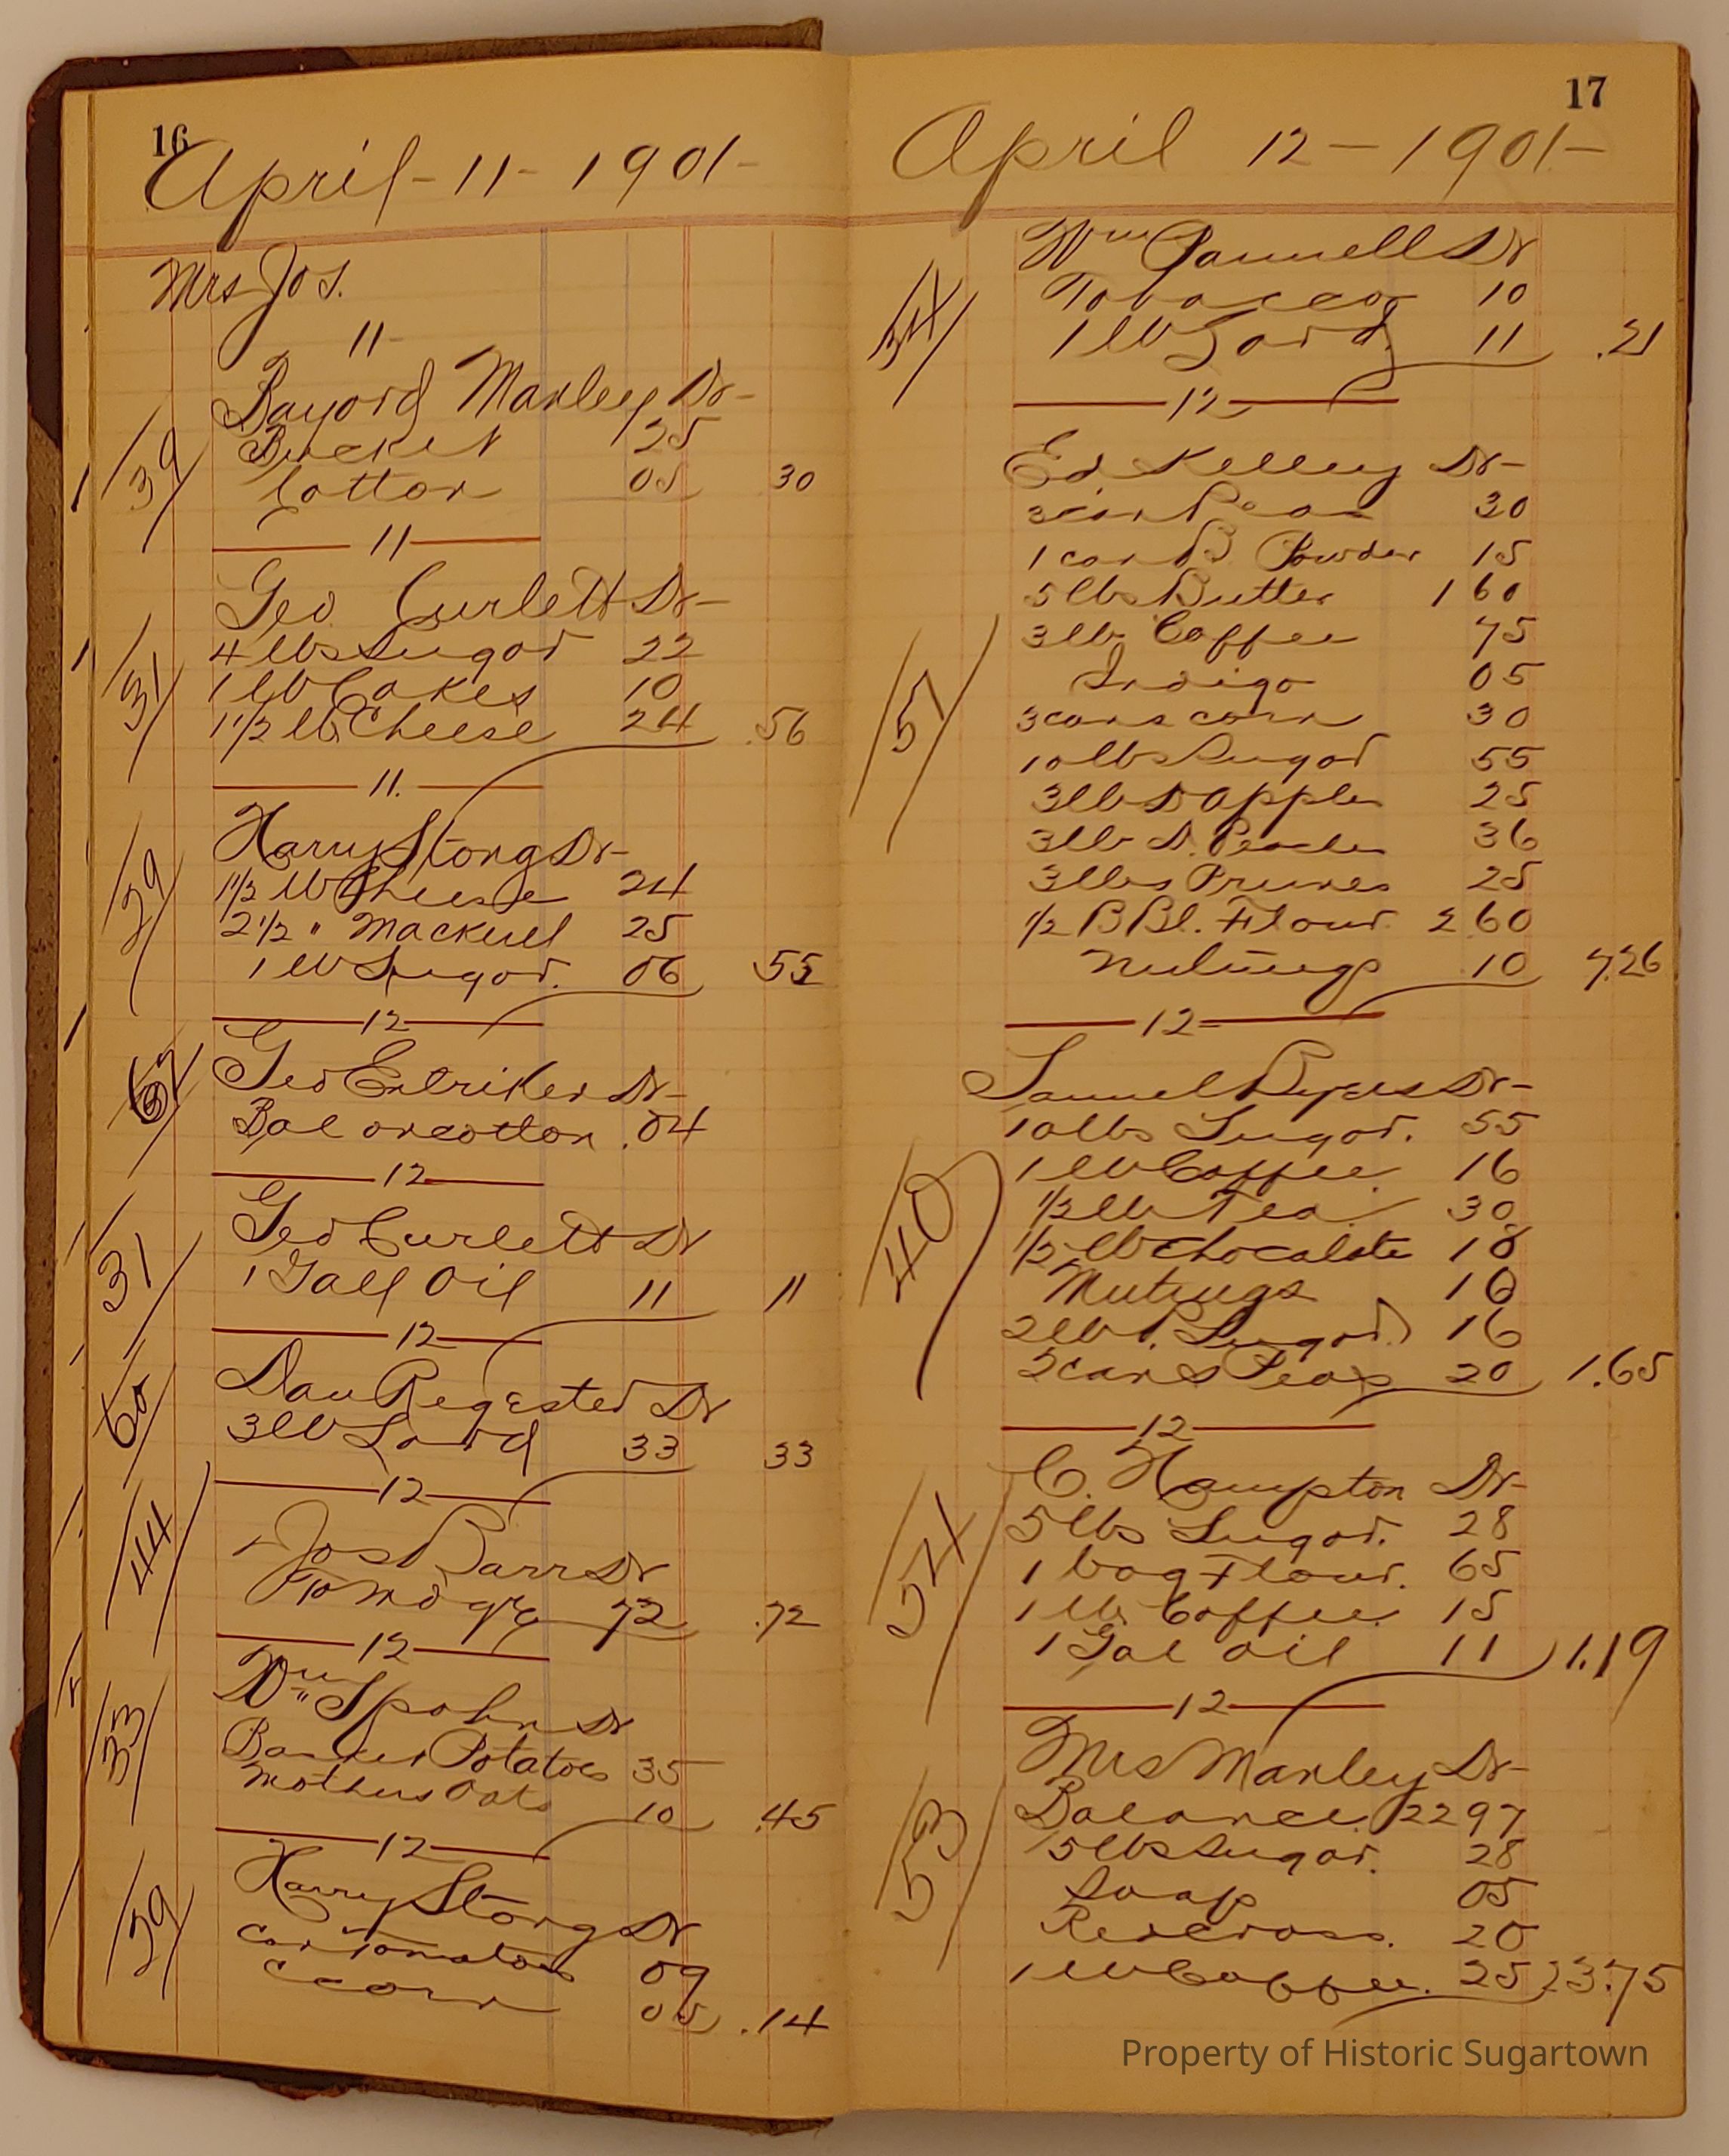 16
April-11-1901-
Mrs Jos.
11-
Bayord Manley Dr-
39
Bucket 25
Cotton 05 30
11
Geo. Curlett Dr-
31
4 lbs Sugar 22
1 lb Cakes 10
1 1/2 lb Cheese 24 .56
11.
Harry Stong Dr-
29
1 1/2 lb Cheese 24
2 1/2 " Mackerel 25
1 lb Sugar. 06 55
12
Geo Entriken Dr-
Bal on cotton .04
12
Geo Curlett Dr
31
1 Gall Oil 11 11
12
Dan Regester Dr
60
3 lb Lard 33 33
12
Jos Barr Dr
44
To Md 72 .72
12
Wm Spohn Dr
33
Potatoes 35
Mothers Oats 10 .45
12
Harry Stong Dr
29
Can Tomatoes 09
Corn 05 .14
17
April 12-1901-
Wm Pannell Dr
54
Tobacco 10
1 lb Lard 11 .21
12
Ed. Kelley Dr-
57
3 can Peas 30
1 can B Powder 15
5 lbs Butter 1 60
3 lb Coffee 75
Indigo 05
3 cans corn 30
10 lbs Sugar 55
3 lb D Apples 25
3 lb D. Peaches 36
3 lbs Prunes 25
1/2 BBl. Flour. 2 60
Nutmegs 10 7.26
12
Samuel Byers Dr-
40
10 lbs Sugar. 55
1 lb Coffee 16
1/2 lb Tea 30
1/2 lb chocolate 18
Nutmegs 10
2 lb P. Sugar. 16
2 cans Peas 20 1.65
12
C. Hampton Dr-
5 lbs Sugar. 28
1 bag Flour. 65
1 lb Coffee 15
1 Gal Oil 11 1.19
12
Mrs Manley Dr-
53
Balance 22 97
5 lbs Sugar. 28
Soap 05
Redcross. 20
1 lb Coffee. 25 23.75
Property of Historic Sugartown